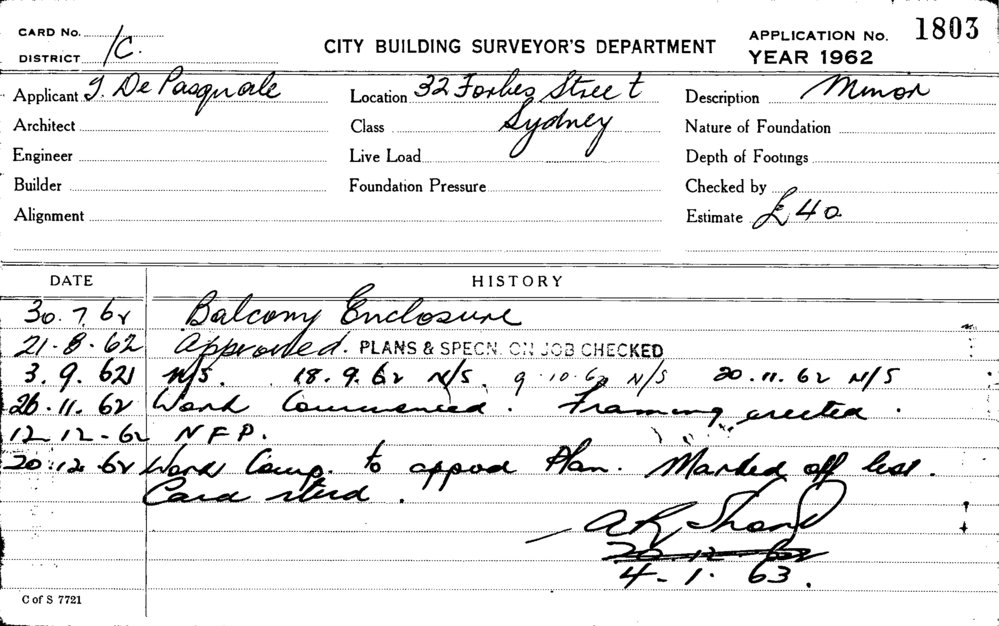 CARD No.
DISTRICT 1C.
CITY BUILDING SURVEYOR'S DEPARTMENT
APPLICATION No. 1803
YEAR 1962
Applicant J. De Pasquale Location 32 Forbes Street Description Minor
Architect Class Sydney Nature of Foundation
Engineer Live Load Depth of Footings
Builder Foundation Pressure Checked by
Alignment Estimate £40
DATE HISTORY
30.7.62 Balcony Enclosure
21.8.62 Approved. PLANS & SPECN. ON JOB CHECKED
3.9.62 N/S. 18.9.62 N/S. 9.10.62 N/S 20.11.62 N/S
26.11.62 Work Commenced. Framing erected.
12.12.62 NFP.
20.12.62 Work Comp. to appvd Plan. Marked off list.
Card
A R Shand
20.12.62
4.1.63.
C of S 7721